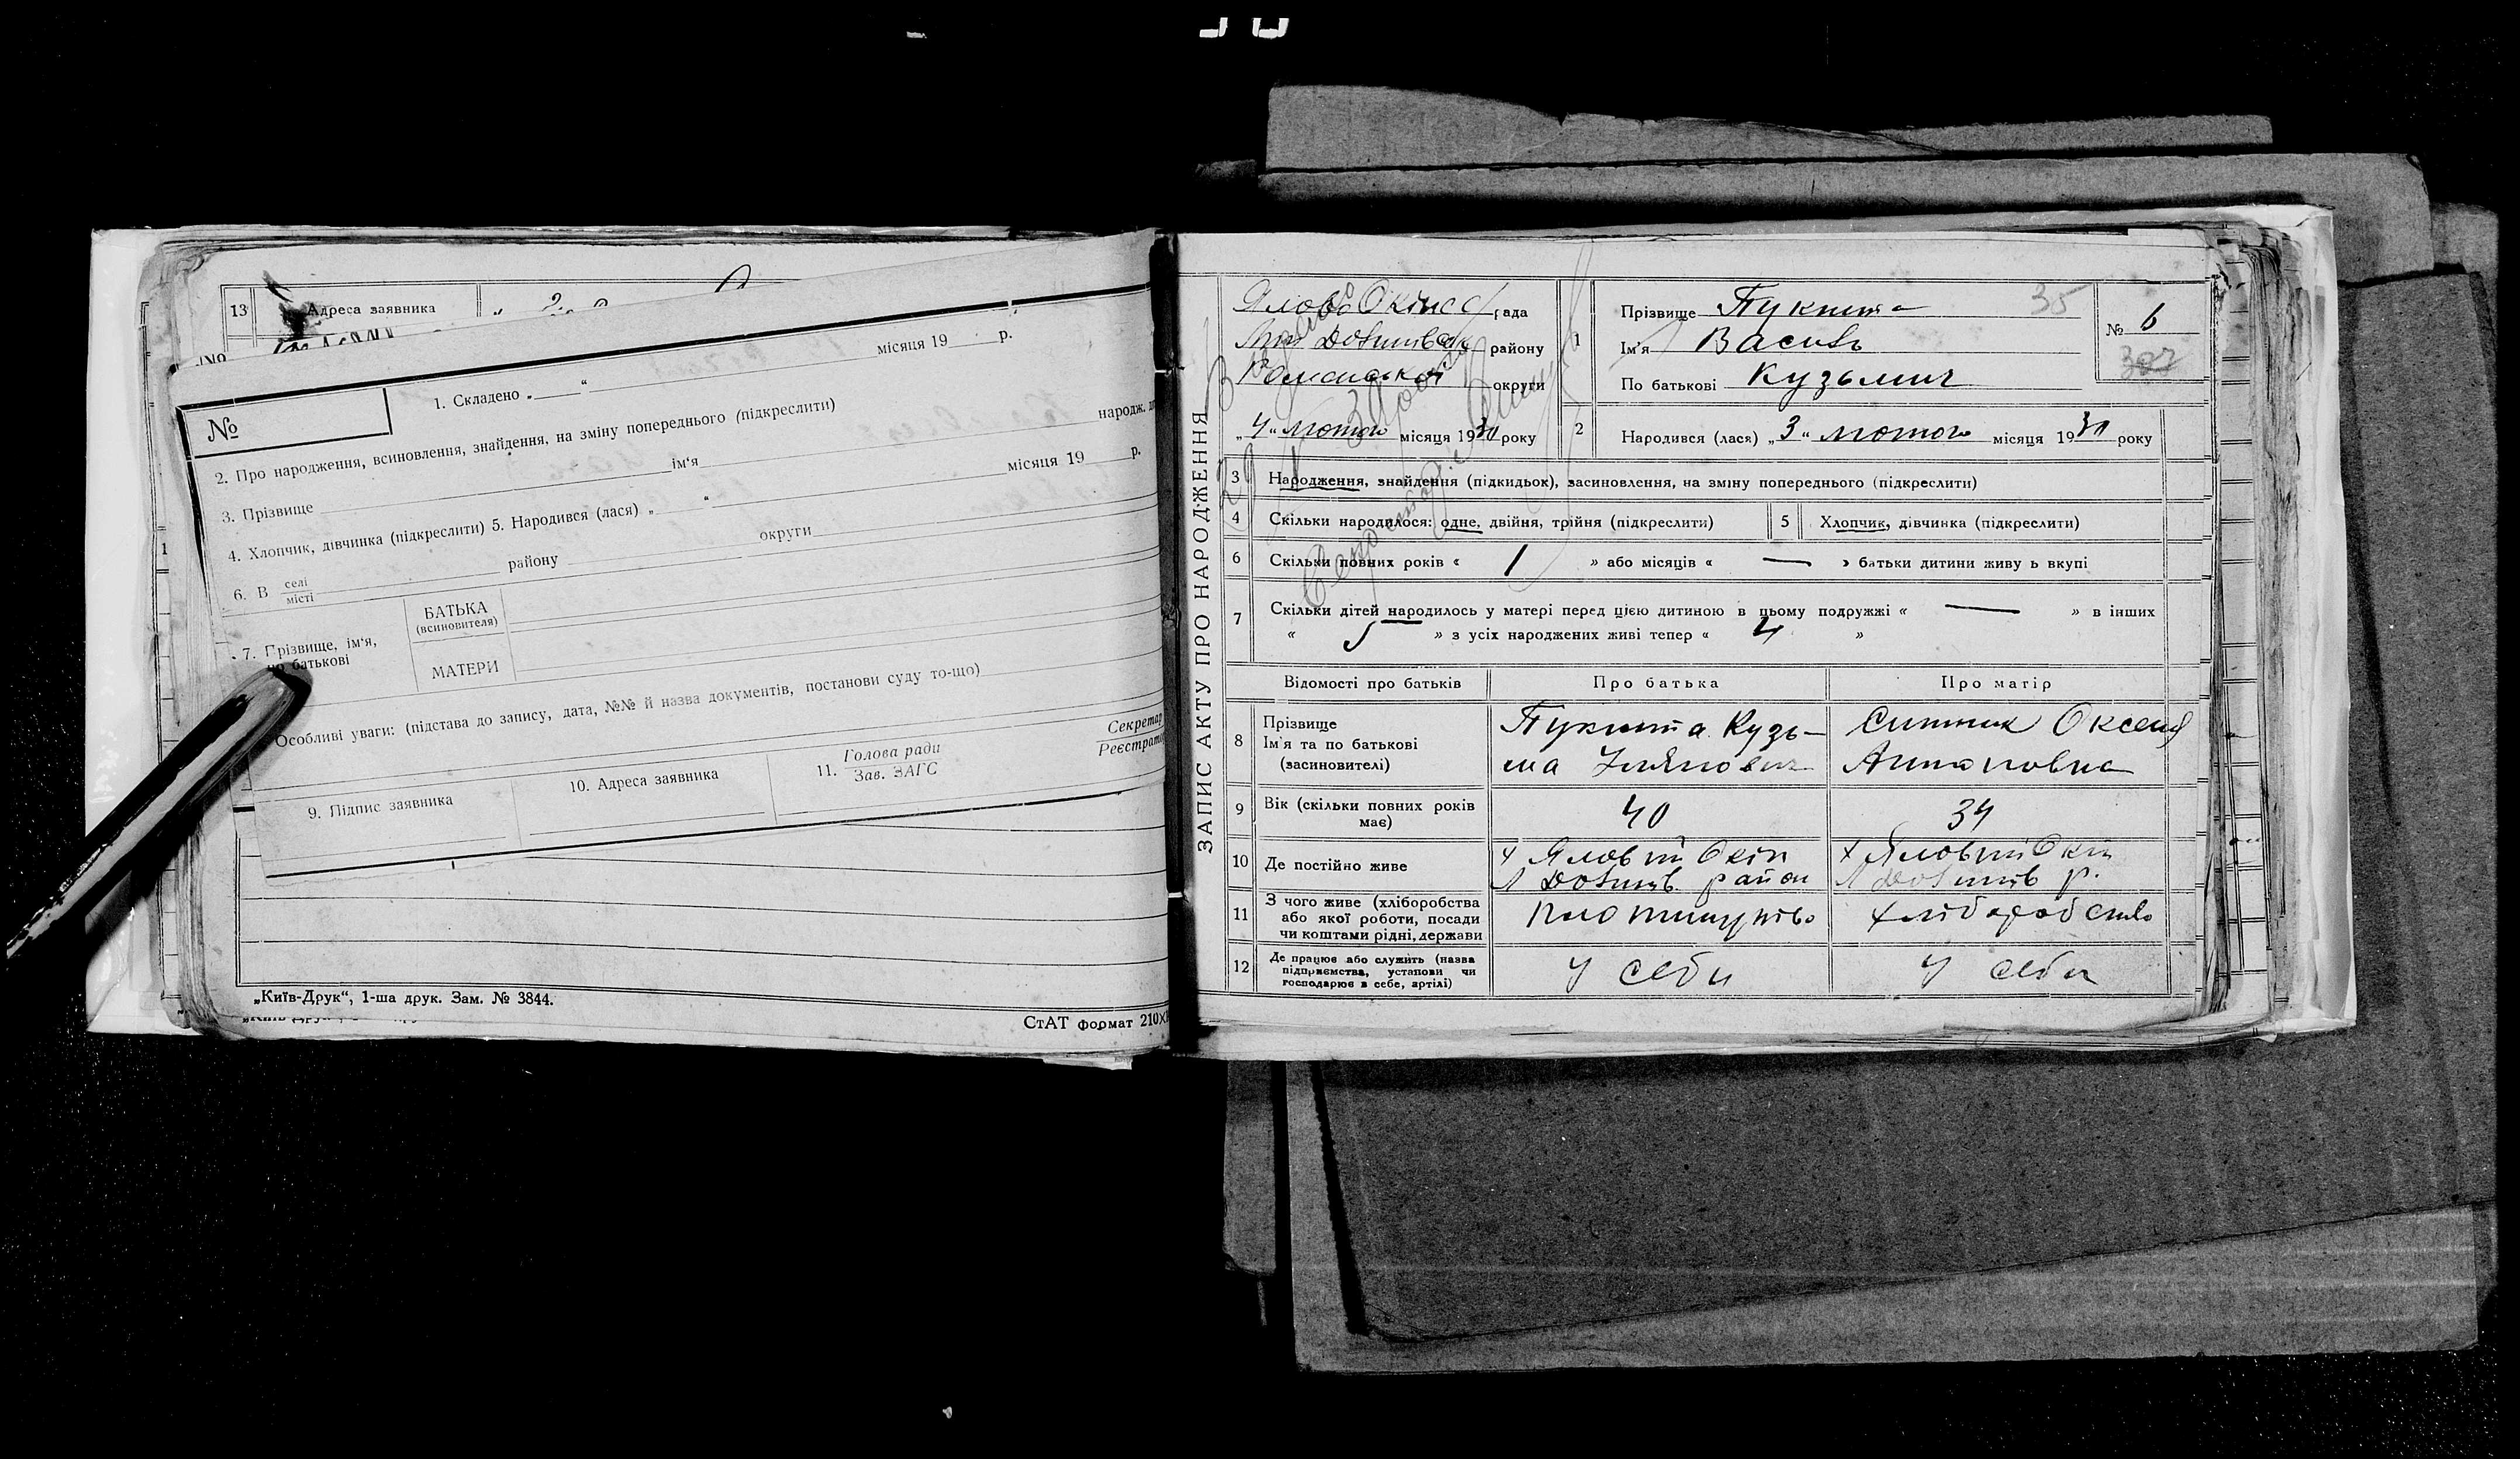 13 Адреса заявника
№
1. Складено „ “ місяця 19 р.
2. Про народження, всиновлення, знайдення, на зміну попереднього (підкреслити) народж.
3. Прізвище ім'я
4. Хлопчик, дівчинка (підкреслити) 5. Народився (лася) „ “ місяця 19 р.
6. В селі місті району округи
7. Прізвище, ім'я, по батькові
БАТЬКА
(всиновителя)
МАТЕРИ
Особливі уваги: (підстава до запису, дата, №№ й назва документів, постанови суду то-що)
9. Підпис заявника
10. Адреса заявника
11. Голова ради
Зав. ЗАГС
Секретар
Реєстратор
„Київ-Друк“, 1-ша друк. Зам. № 3844.
СтАТ формат 210×
ЗАПИС АКТУ ПРО НАРОДЖЕННЯ
рада
району
Роменської округи
„4“ лютого місяця 1930 року
1
Прізвище Пукшта
35
Ім'я Василь
По батькові Кузьмич
№ 6
2 Народився (лася) „3“ лютого місяця 1930 року
3 Народження, знайдення (підкидьок), засиновлення, на зміну попереднього (підкреслити)
4 Скільки народилося: одне, двійня, трійня (підкреслити)
5 Хлопчик, дівчинка (підкреслити)
6 Скільки повних років « 1 » або місяців « — » батьки дитини живуть вкупі
7 Скільки дітей народилось у матері перед цією дитиною в цьому подружжі « — » в інших
« 5 » з усіх народжених живі тепер « 4 »
Відомості про батьків Про батька Про матір
8 Прізвище
Ім'я та по батькові
(засиновителі)
Пукшта Кузь-
ма Улянович
Ситник Оксена
Антоновна
9 Вік (скільки повних років має) 40 34
10 Де постійно живе
х Яловий Окіп
район
х Яловий Окіп
р.
11 З чого живе (хліборобства
або якої роботи, посади
чи коштами рідні, держави
хліборобство
12 Де працює або служить (назва
підприємства, установи чи
господарює в себе, артілі)
У себе
У себе